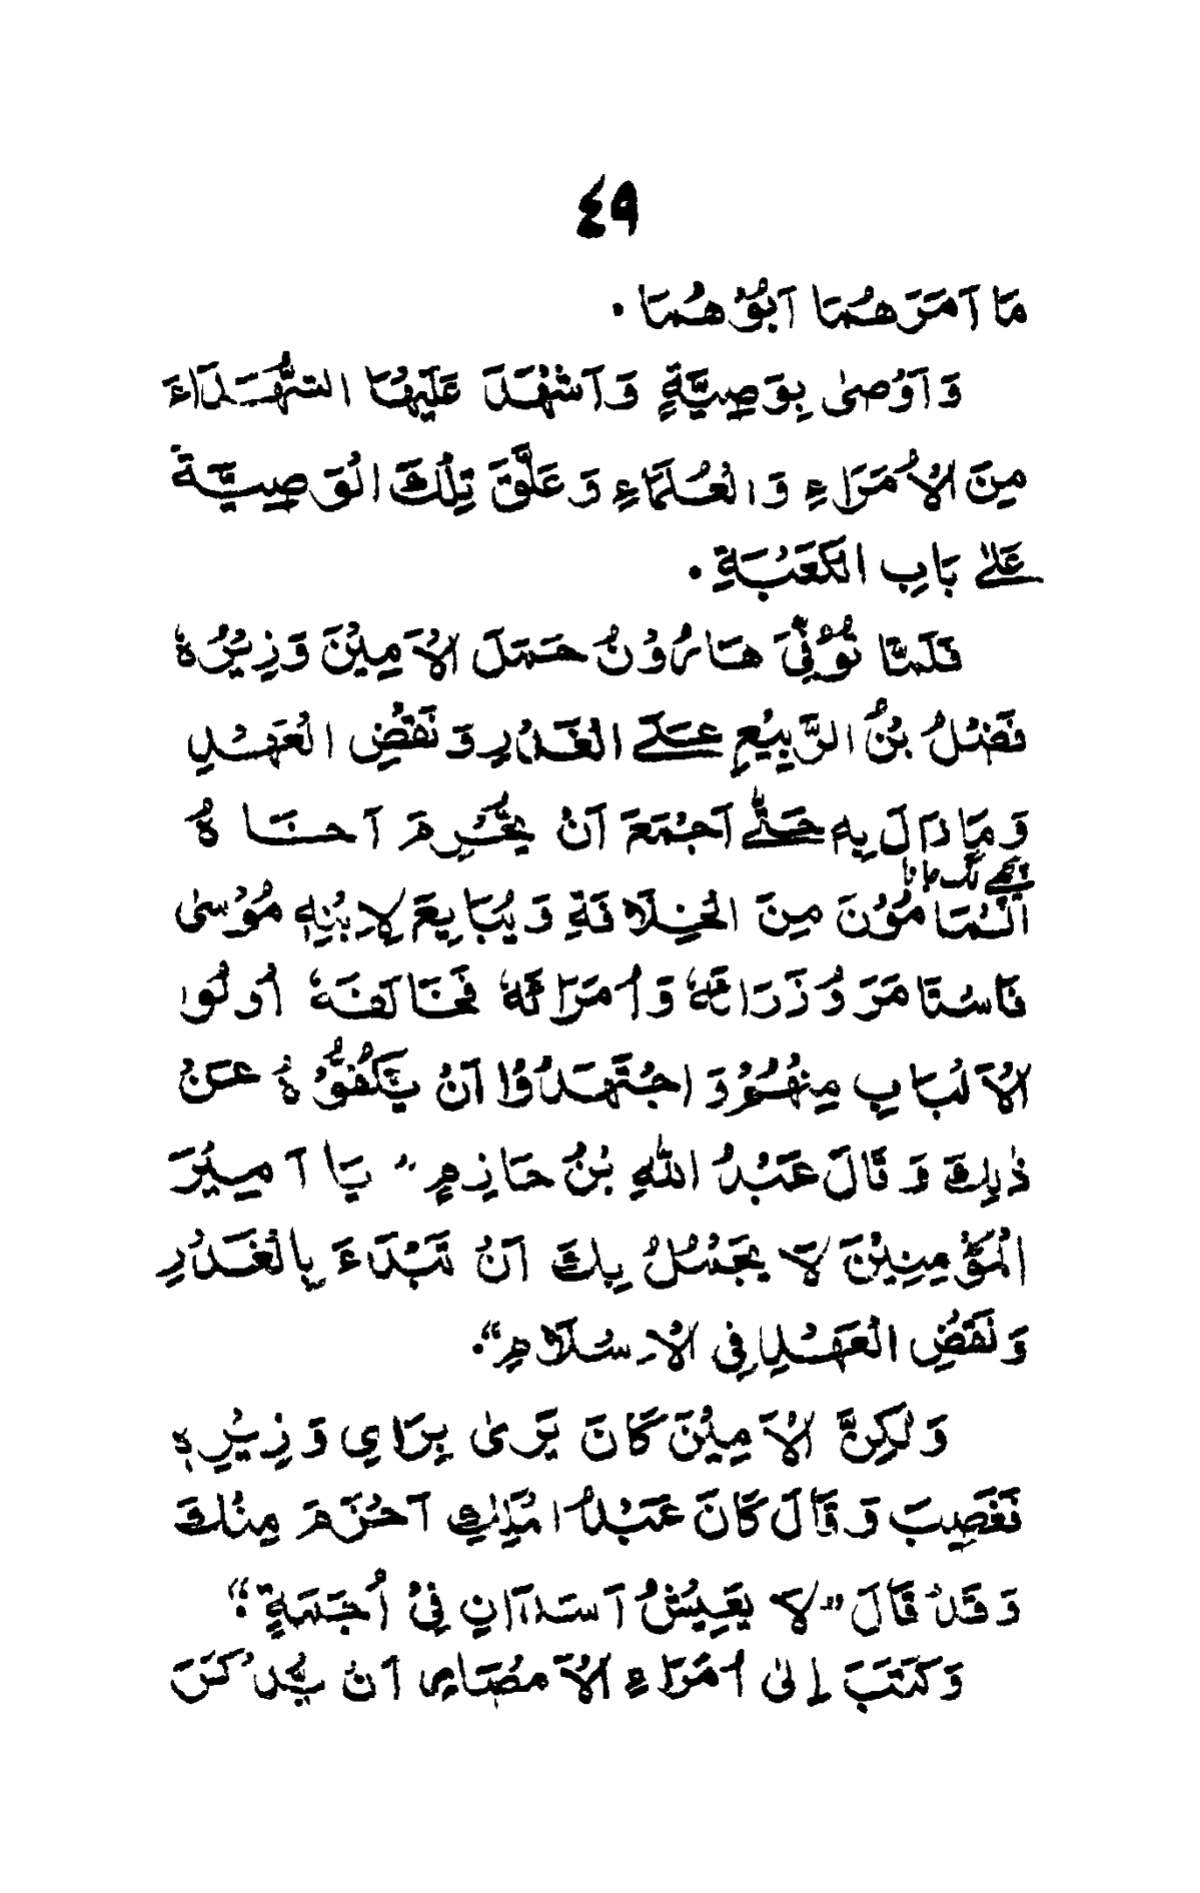 ٤٩
مَا اَمَرَهُمَا اَبُوْهُمَا ۰
وَاَوْصٰى بِوَصِيَّةٍ وَاَشْهَدَ عَلَيْهَا الشُّهَدَاءَ
مِنَ الْاُمَرَاءِ وَالْعُلَمَاءِ وَعَلَّقَ تِلْكَ الْوَصِيَّةَ
عَلٰى بَابِ الْكَعْبَةِ ۰
فَلَمَّا تُوُفِّيَ هَارُوْنُ حَمَلَ الْاَمِيْنَ وَزِيْرُهٗ
فَضْلُ بْنُ الرَّبِيْعِ عَلَى الْغَدْرِ وَنَقْضِ الْعَهْدِ
وَمَا زَالَ بِهٖ حَتّٰى اَجْمَعَ اَنْ يُّحْرِمَ اَخَاهُ
الْمَامُوْنَ مِنَ الْخِلَافَةِ وَيُبَايِعَ لِابْنِهٖ مُوْسٰى
فَاسْتَامَرَ وُزَرَائَهٗ وَاُمَرَائَهٗ فَخَالَفَهٗ اُولُوا
الْاَلْبَابِ مِنْهُمْ وَاجْتَهَدُوْا اَنْ يَّكُفُّوْهُ عَنْ
ذٰلِكَ وَقَالَ عَبْدُ اللهِ بْنُ حَازِمٍ "يَا اَمِيْرَ
الْمُؤْمِنِيْنَ لَا يَجْمُلُ بِكَ اَنْ تَبْدَاءَ بِالْغَدْرِ
وَنَقْضِ الْعَهْدِ فِى الْاِسْلَامِ".
وَلٰكِنَّ الْاَمِيْنَ كَانَ يَرٰى بِرَايِ وَزِيْرِهٖ
فَغَضِبَ وَقَالَ كَانَ عَبْدُ الْمَلِكِ اَحْزَمَ مِنْكَ
وَقَدْ قَالَ "لَا يَعِيْشُ اَسَدَانِ فِيْ اُجَمَةٍ"؛
وَكَتَبَ اِلٰى اُمَرَاءِ الْاَمْصَارِ اَنْ يَّذْكُرَ